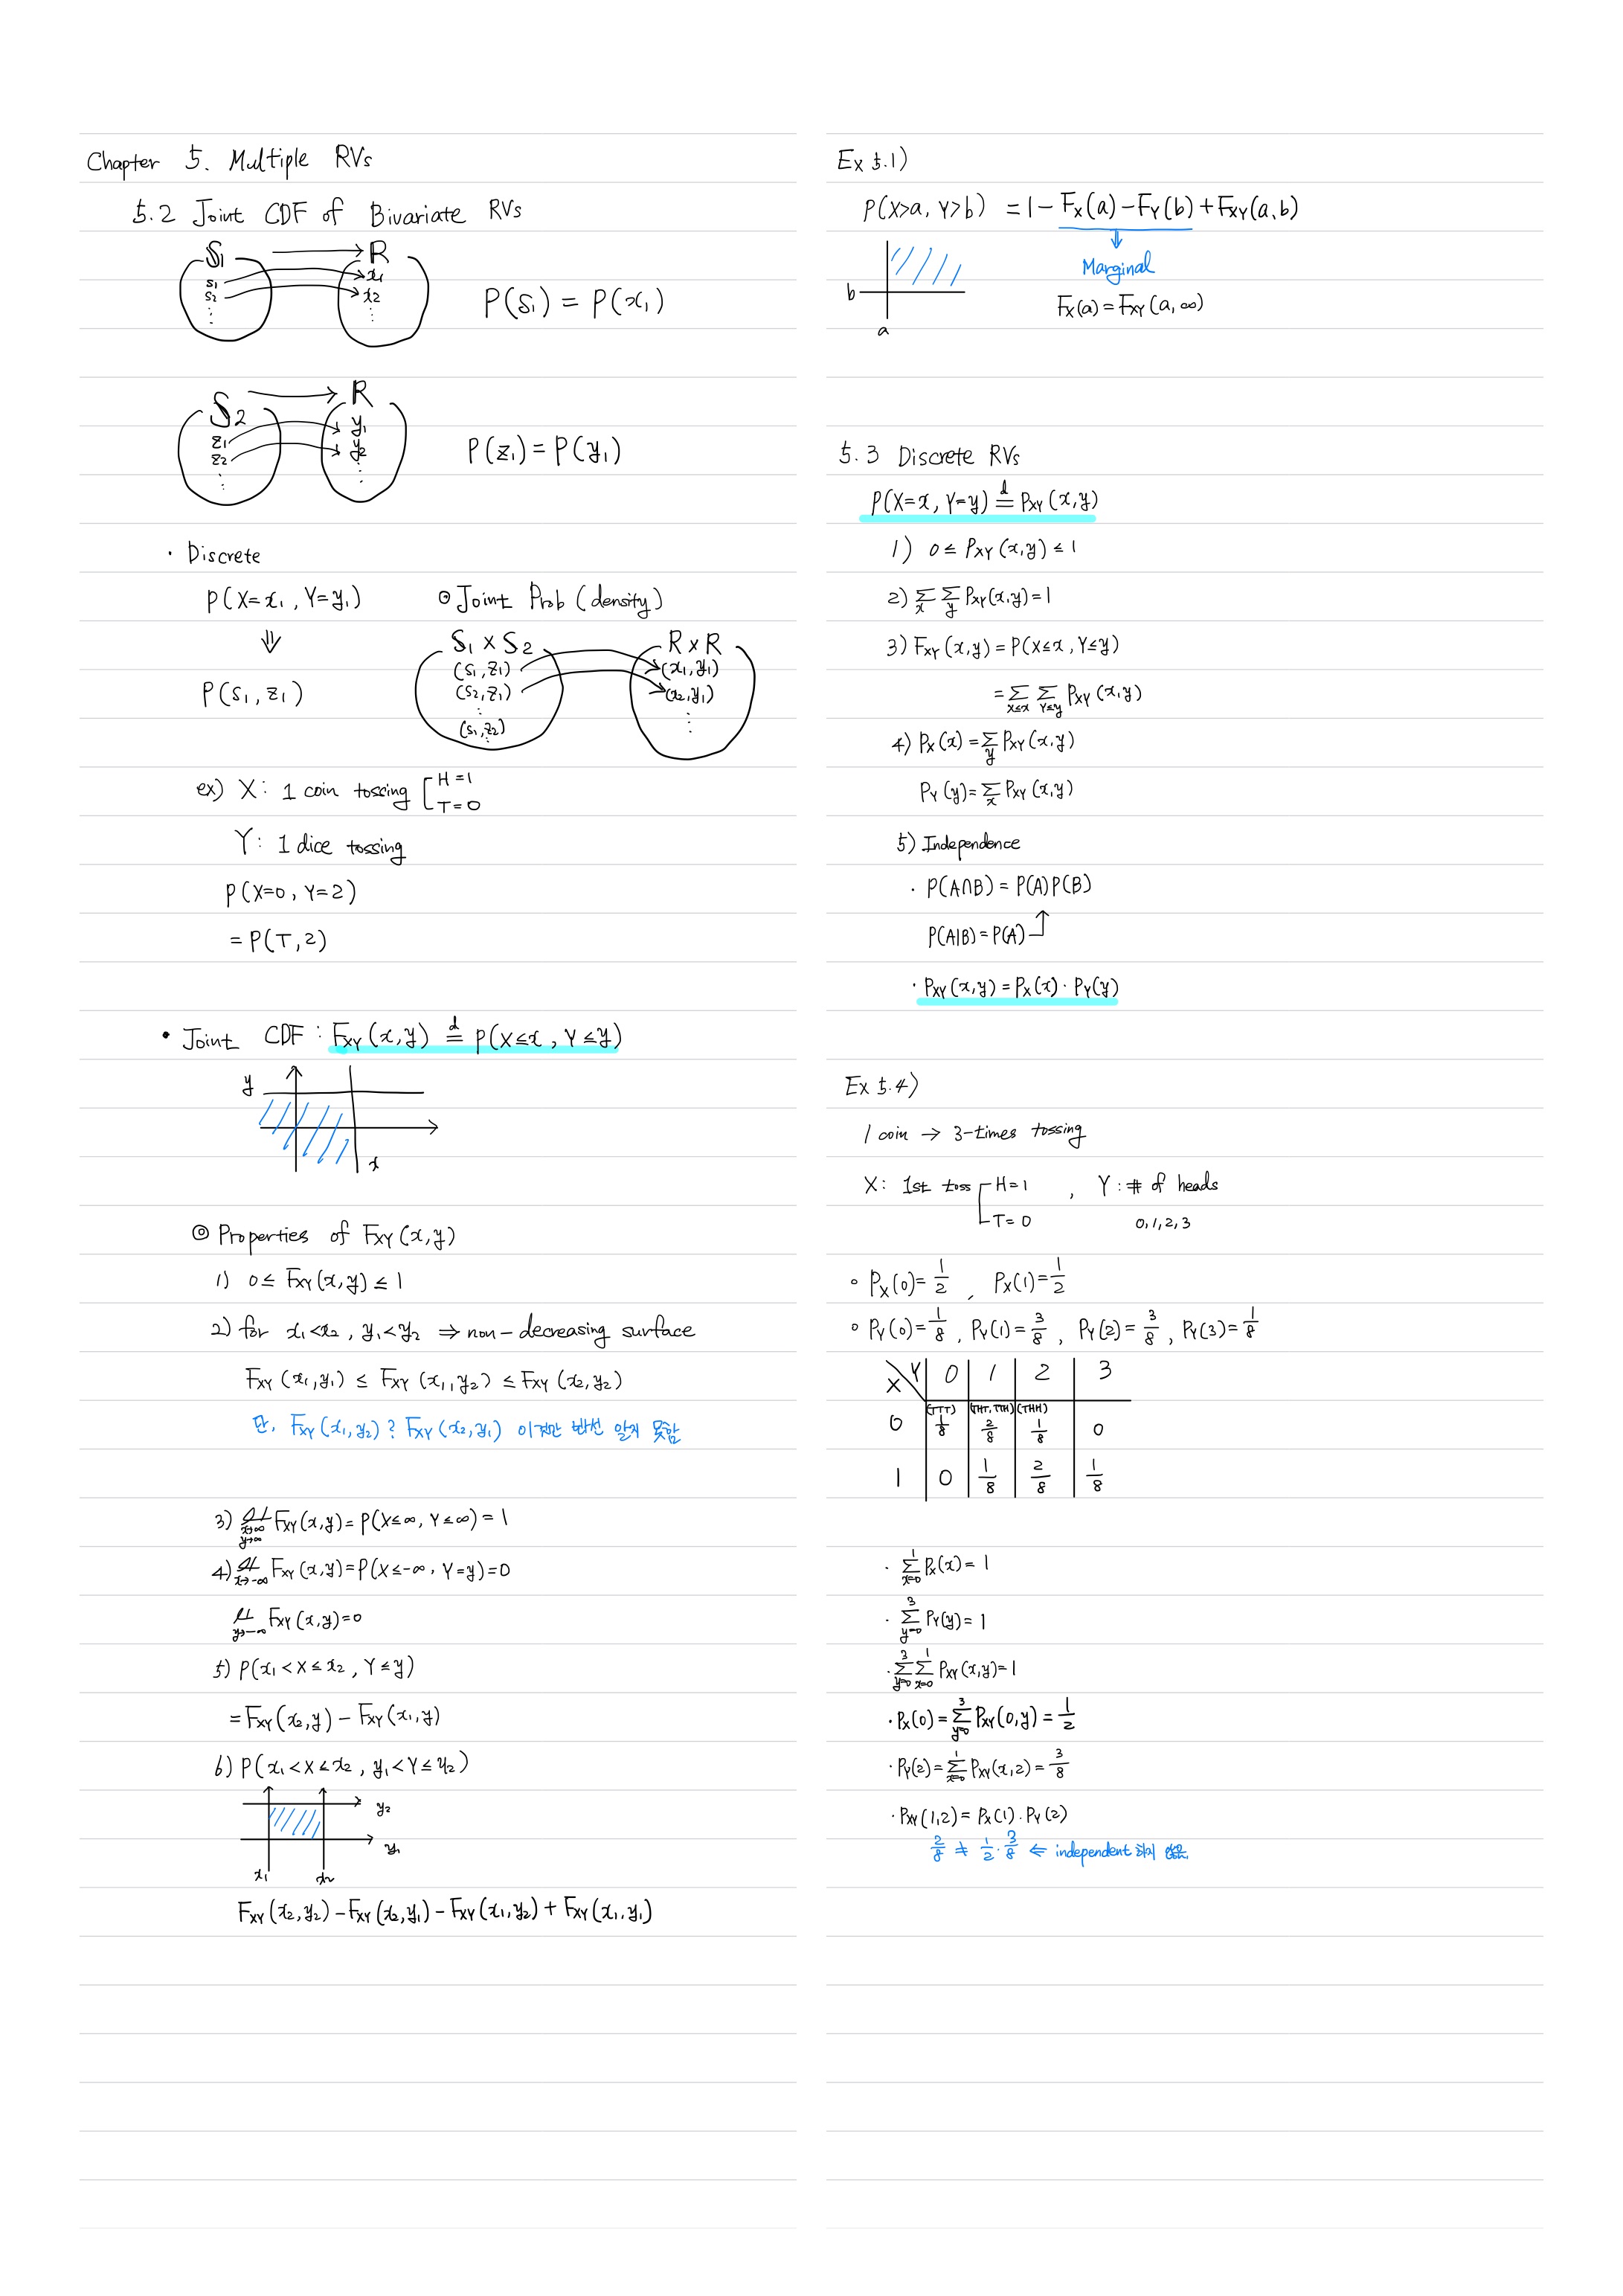 Chapter 5. Multiple RVs
5.2 Joint CDF of Bivariate RVs
S₁ → R
s₁ x₁
s₂ x₂
⋮ ⋮
P(s₁) = P(x₁)
S₂ → R
z₁ y₁
z₂ y₂
⋮ ⋮
P(z₁) = P(y₁)
· Discrete
P(X=x₁, Y=y₁)
⇓
P(s₁, z₁)
⊙ Joint Prob (density)
S₁ × S₂ R × R
(s₁, z₁) (x₁, y₁)
(s₂, z₁) (x₂, y₁)
⋮ ⋮
(s₁, z₂)
ex) X: 1 coin tossing [ H=1
T=0
Y: 1 dice tossing
P(X=0, Y=2)
= P(T, 2)
• Joint CDF : F_XY(x,y) ≝ P(X≤x, Y≤y)
y
x
◎ Properties of F_XY(x,y)
1) 0 ≤ F_XY(x,y) ≤ 1
2) for x₁<x₂, y₁<y₂ ⇒ non-decreasing surface
F_XY(x₁,y₁) ≤ F_XY(x₁,y₂) ≤ F_XY(x₂,y₂)
단, F_XY(x₁,y₂) ? F_XY(x₂,y₁) 이것만 봐선 알지 못함
3) lim x→∞ y→∞ F_XY(x,y) = P(X≤∞, Y≤∞) = 1
4) lim x→-∞ F_XY(x,y) = P(X≤-∞, Y=y) = 0
lim y→-∞ F_XY(x,y) = 0
5) P(x₁<X≤x₂, Y≤y)
= F_XY(x₂,y) - F_XY(x₁,y)
6) P(x₁<X≤x₂, y₁<Y≤y₂)
y₂
y₁
x₁ x₂
F_XY(x₂,y₂) - F_XY(x₂,y₁) - F_XY(x₁,y₂) + F_XY(x₁,y₁)
Ex 5.1)
P(X>a, Y>b) = 1 - F_X(a) - F_Y(b) + F_XY(a,b)
⇓
Marginal
b
F_X(a) = F_XY(a,∞)
a
5.3 Discrete RVs
P(X=x, Y=y) ≝ P_XY(x,y)
1) 0 ≤ P_XY(x,y) ≤ 1
2) Σ_x Σ_y P_XY(x,y) = 1
3) F_XY(x,y) = P(X≤x, Y≤y)
= Σ_{X≤x} Σ_{Y≤y} P_XY(x,y)
4) P_X(x) = Σ_y P_XY(x,y)
P_Y(y) = Σ_x P_XY(x,y)
5) Independence
· P(A∩B) = P(A)P(B)
P(A|B) = P(A) ↑
· P_XY(x,y) = P_X(x) · P_Y(y)
Ex 5.4)
1 coin → 3-times tossing
X: 1st toss [ H=1 , Y: # of heads
T=0 0,1,2,3
∘ P_X(0) = 1/2 , P_X(1) = 1/2
∘ P_Y(0) = 1/8, P_Y(1) = 3/8, P_Y(2) = 3/8, P_Y(3) = 1/8
X\Y 0 1 2 3
(TTT) (THT, TTH) (THH)
0 1/8 2/8 1/8 0
1 0 1/8 2/8 1/8
· Σ_{x=0}^{1} P_X(x) = 1
· Σ_{y=0}^{3} P_Y(y) = 1
· Σ_{y=0}^{3} Σ_{x=0}^{1} P_XY(x,y) = 1
· P_X(0) = Σ_{y=0}^{3} P_XY(0,y) = 1/2
· P_Y(2) = Σ_{x=0}^{1} P_XY(x,2) = 3/8
· P_XY(1,2) = P_X(1) · P_Y(2)
2/8 ≠ 1/2 · 3/8 ⇐ independent 하지 않음.